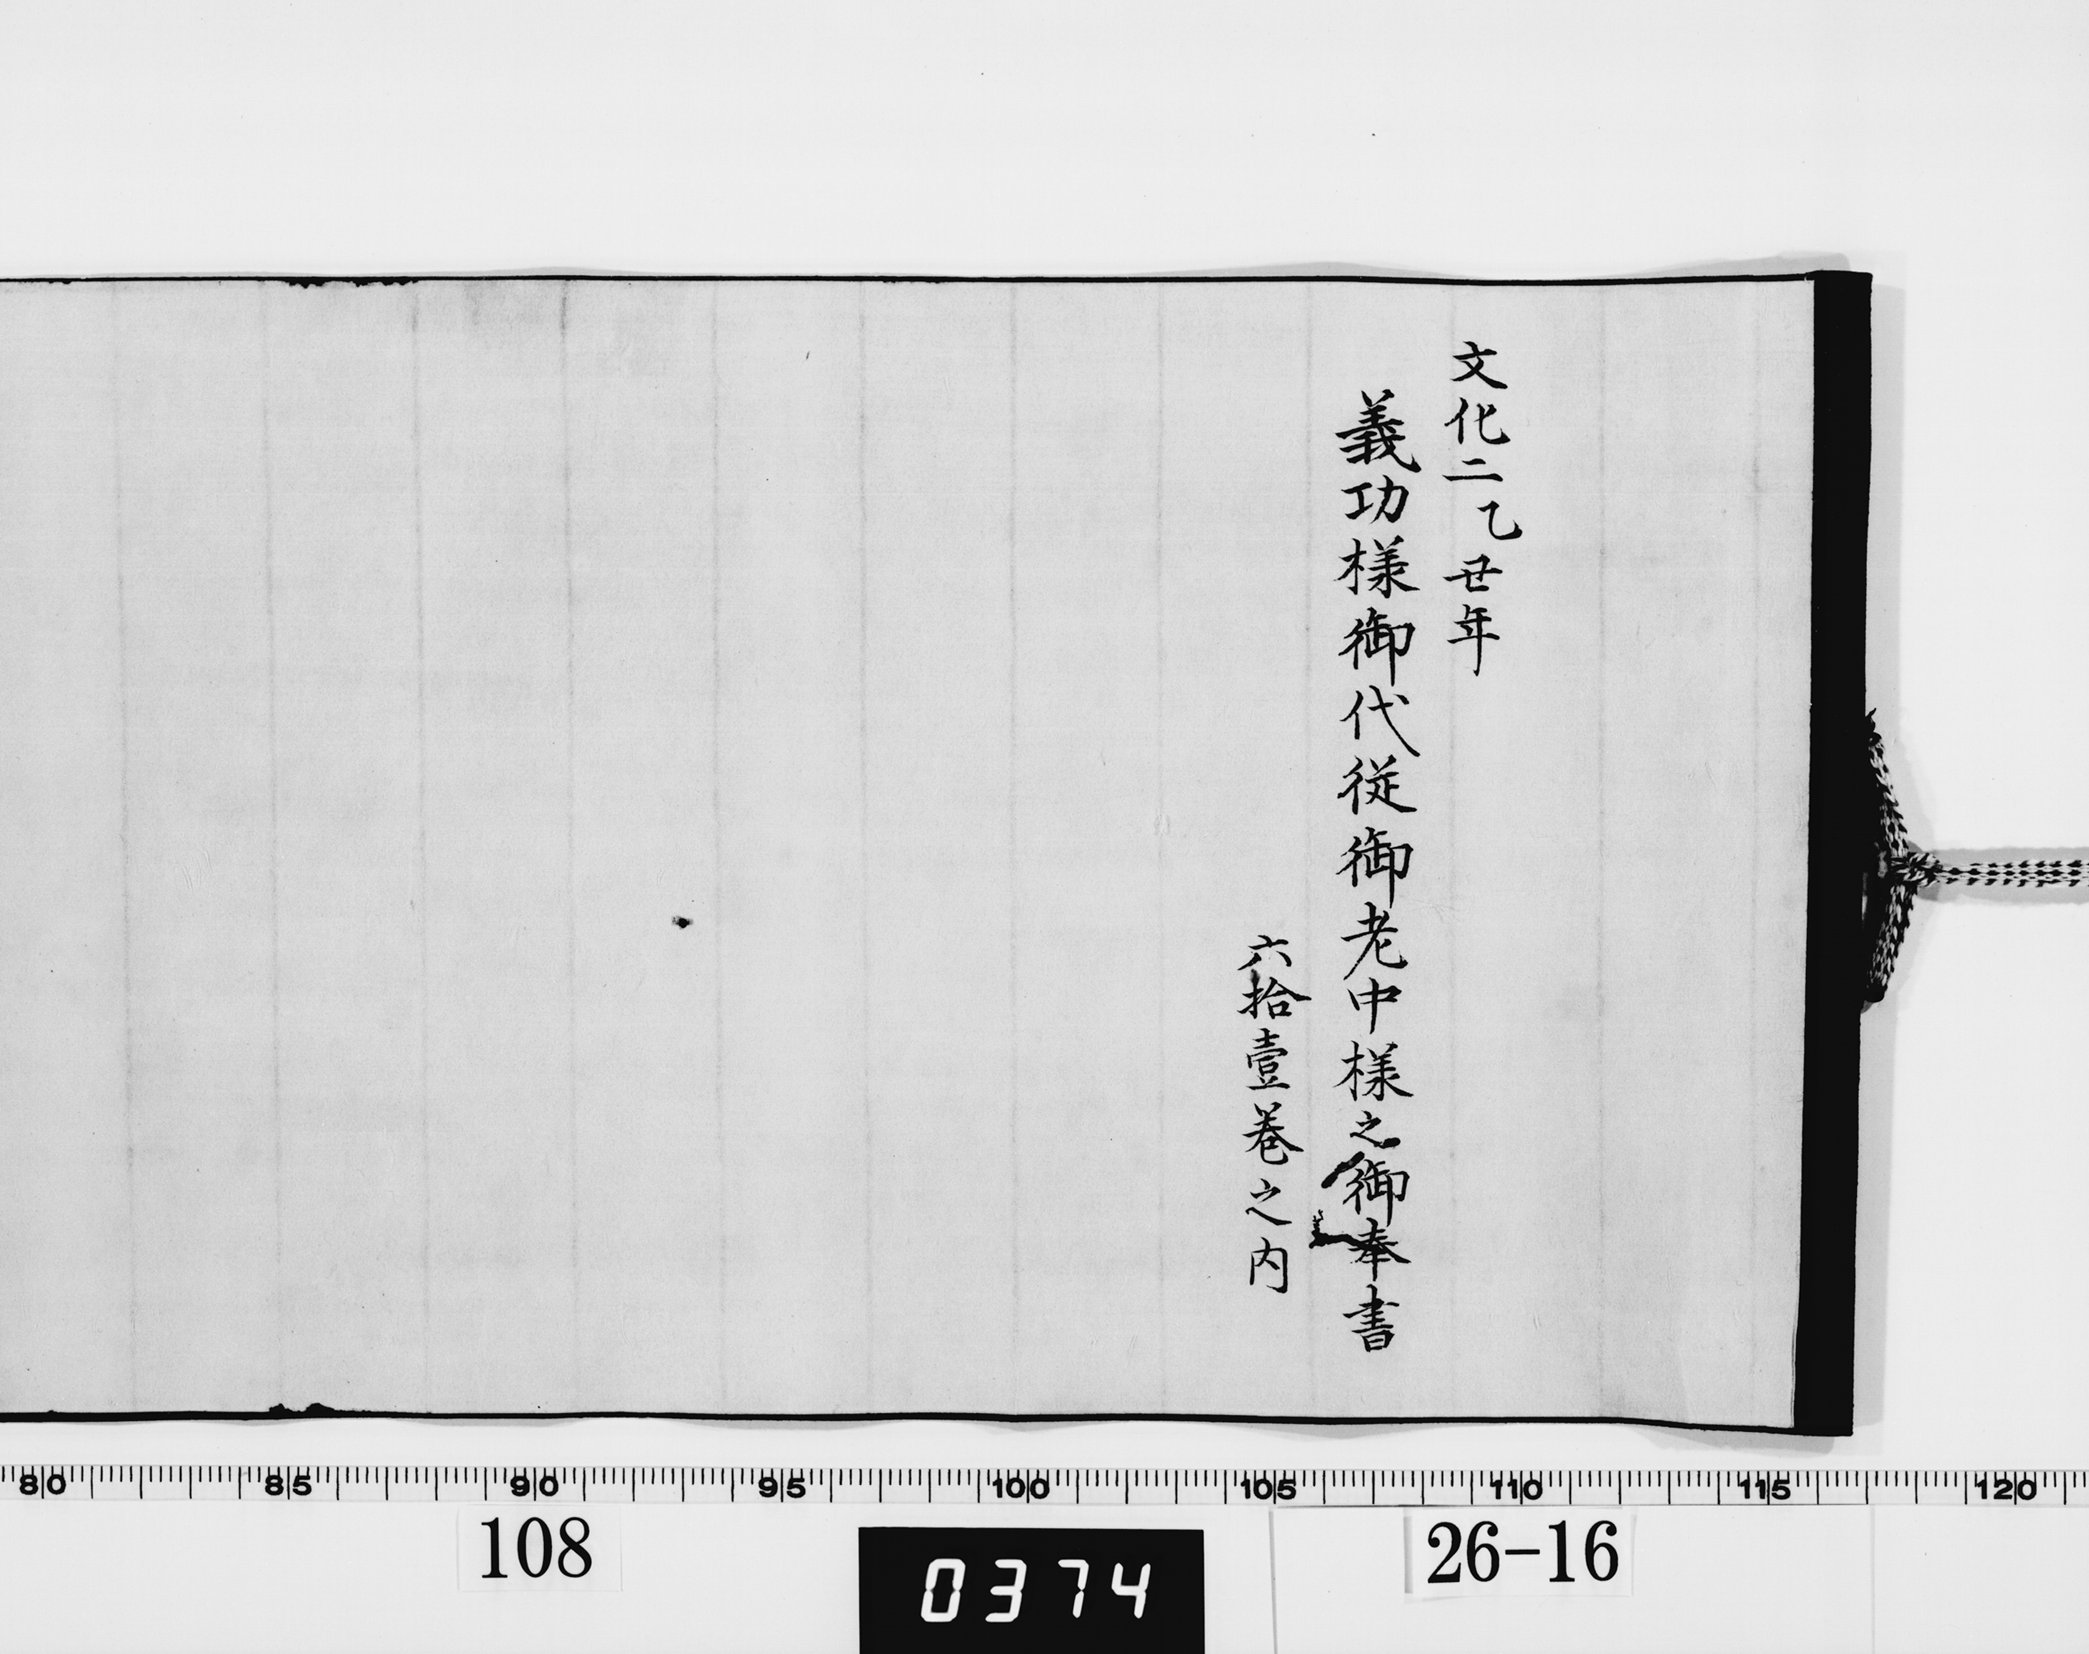 文化二乙丑年
義功様御代従御老中様之御奉書
六拾壹巻之内
80 85 90 95 100 105 110 115 120
108
0374
26-16